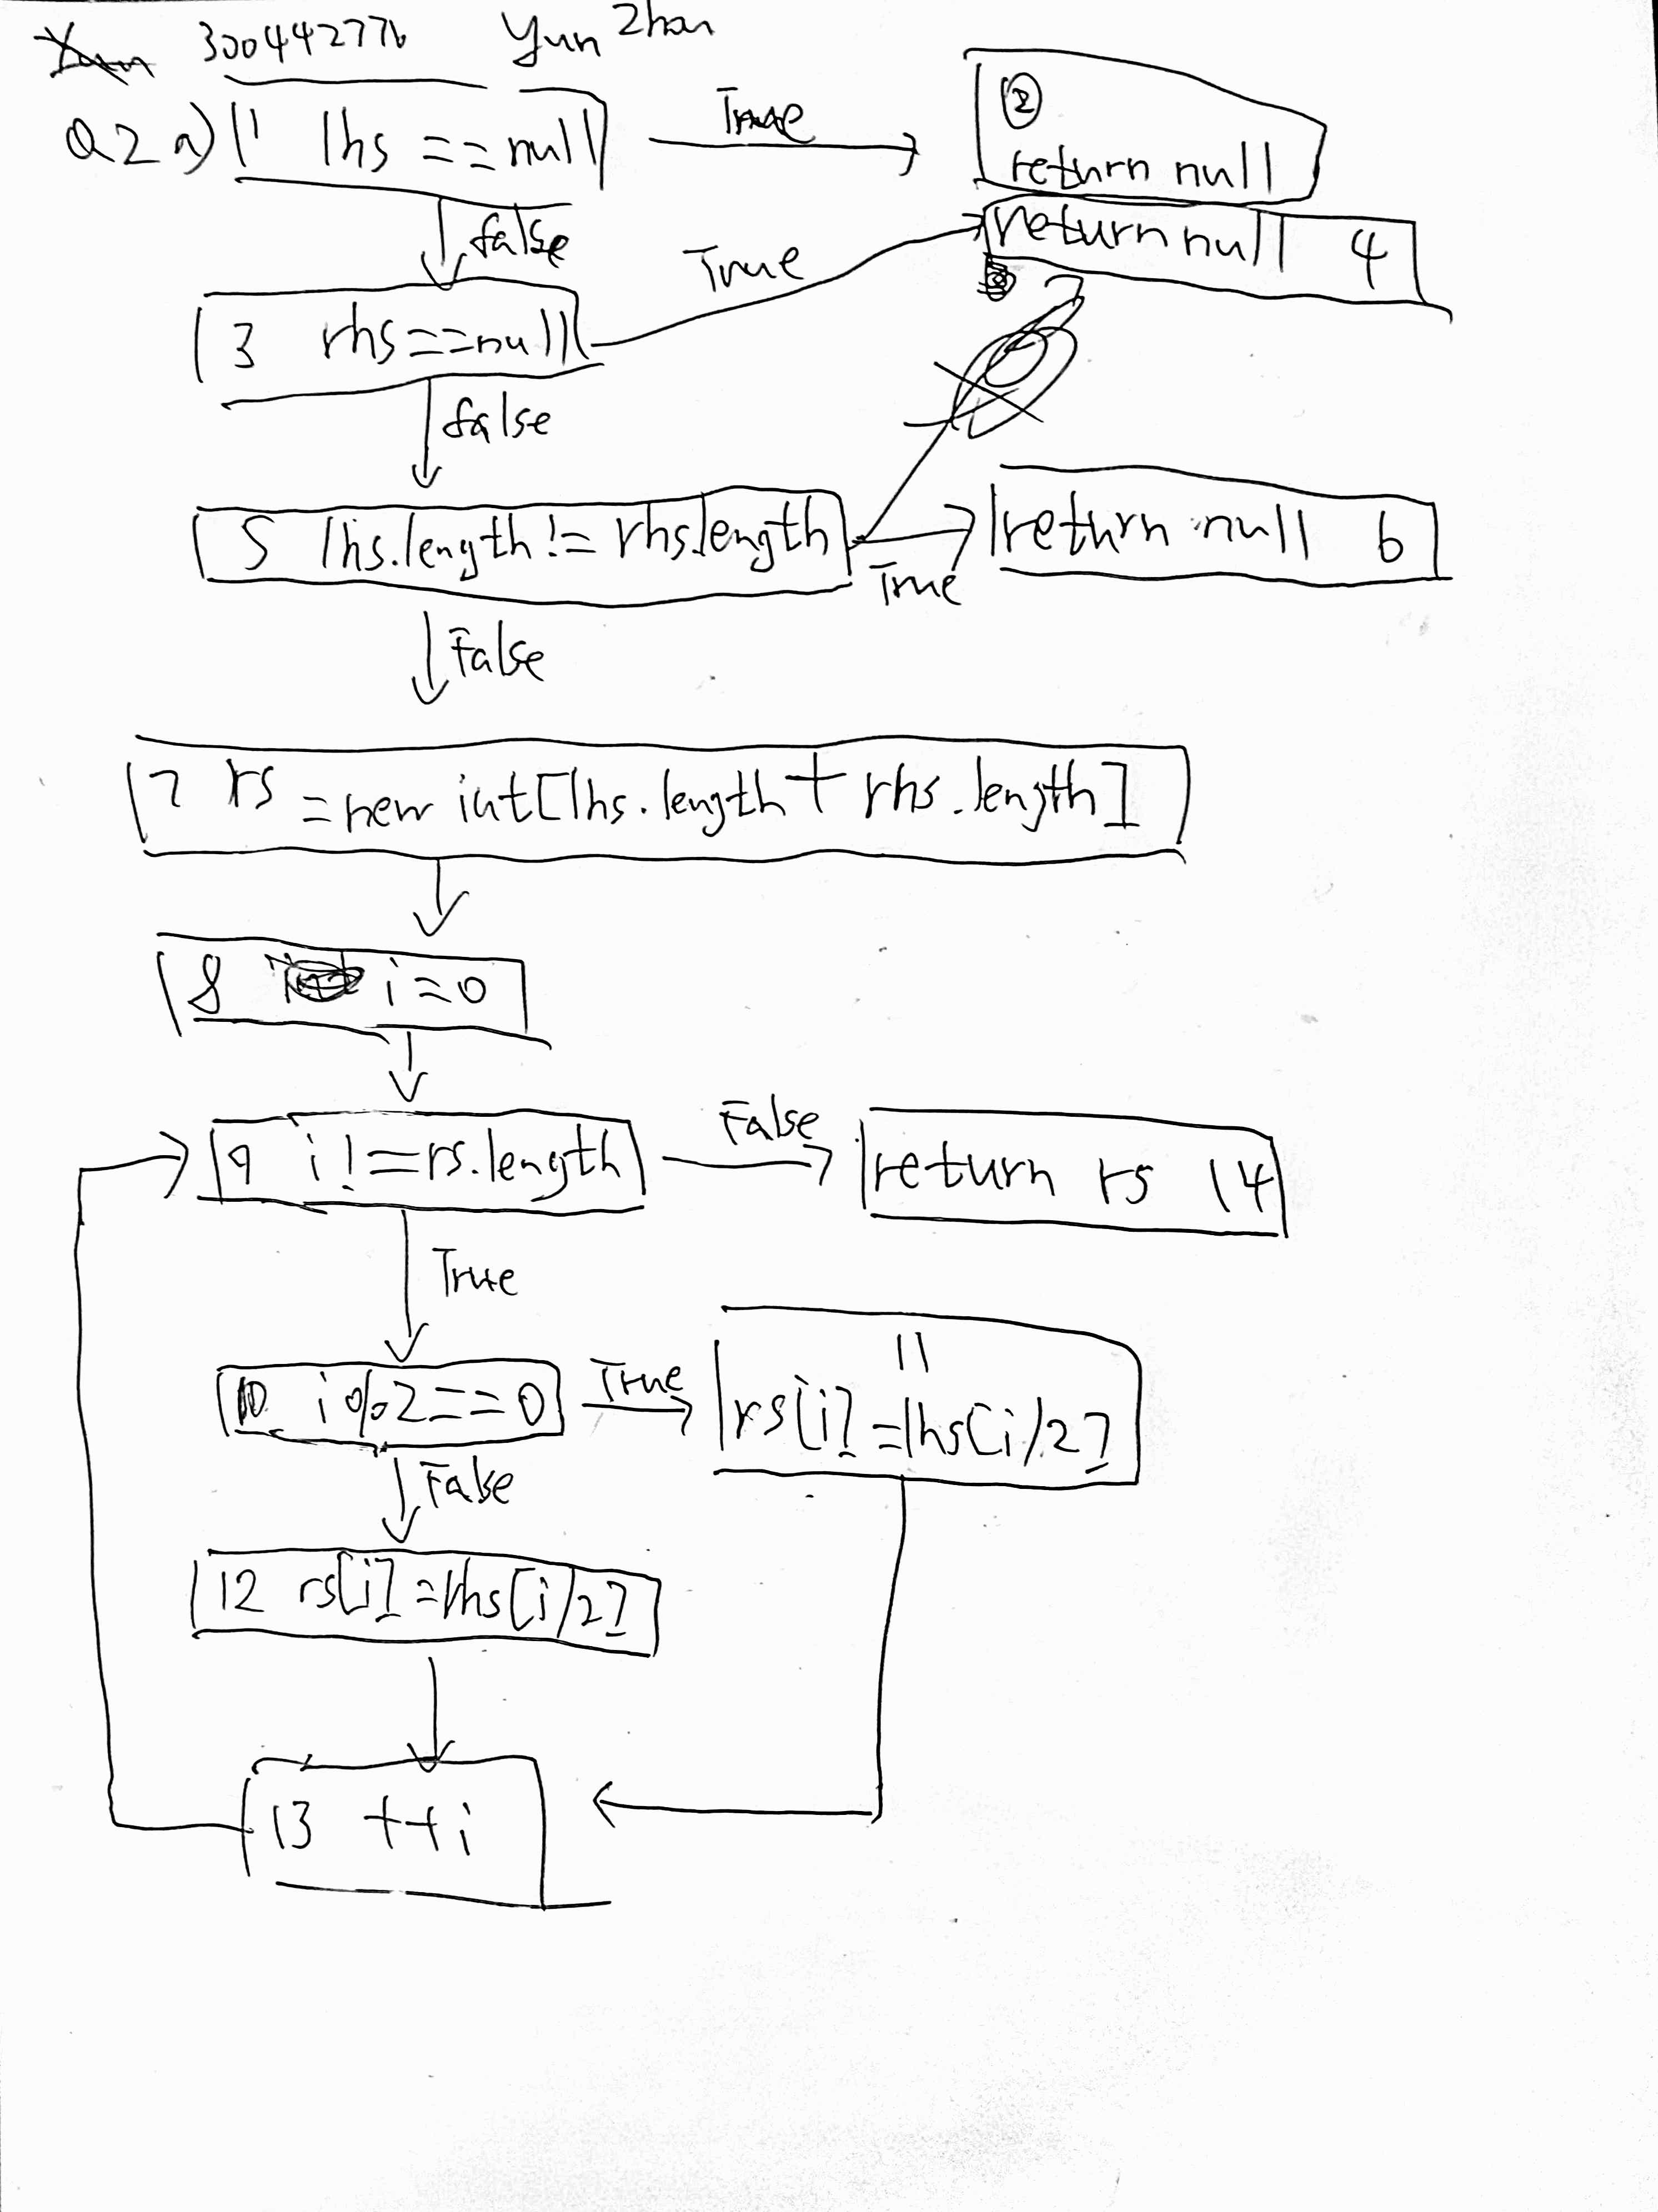 300442776 Yun Zhan
Q2 a) 1 lhs == null
True
②
return null
false
True
return null 4
3 rhs==null
false
5 lhs.length != rhs.length
True
return null 6
False
7 rs = new int[lhs.length + rhs.length]
8 i=0
9 i!=rs.length
False
return rs 14
True
10 i%2==0
True
11
rs[i]=lhs[i/2]
False
12 rs[i]=rhs[i/2]
13 ++i